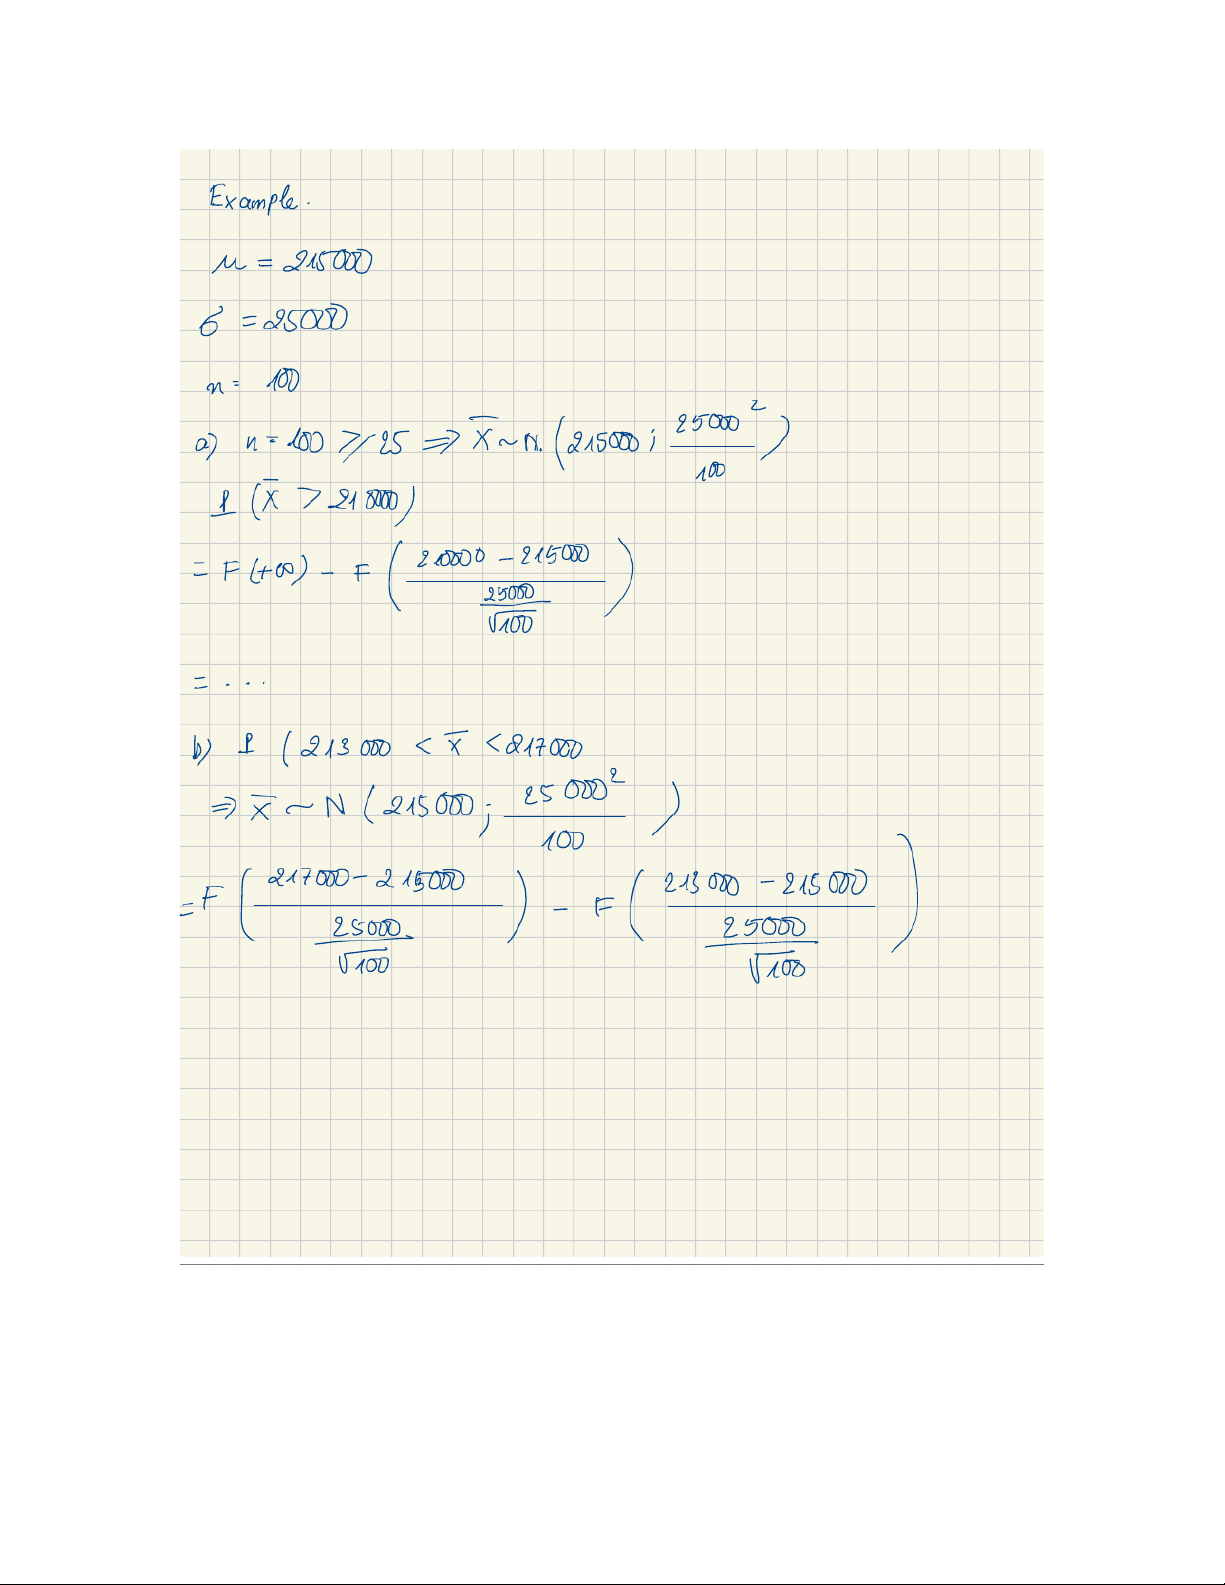 Example.
μ = 215000
σ = 25000
n = 100
a) n = 100 ≥ 25 ⇒ X̄ ~ N. (215000 ; 25000² / 100)
P (X̄ > 210000)
= F(+∞) - F ( (210000 - 215000) / (25000 / √100) )
= ...
b) P ( 213 000 < X̄ < 217000
⇒ X̄ ~ N ( 215000 ; 25 000² / 100 )
= F ( (217000 - 215000) / (25000 / √100) ) - F ( (213000 - 215000) / (25000 / √100) )